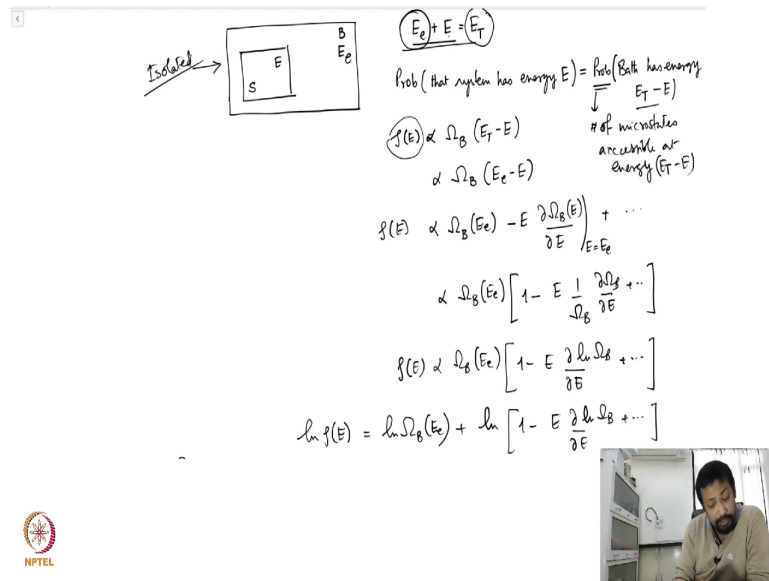 B
E_e
E
S
Isolated →
E_e + E = E_T
Prob (that system has energy E) = Prob (Bath has energy E_T - E)
↓
# of microstates
accessible at
energy (E_T - E)
ρ(E) ∝ Ω_B (E_T - E)
∝ Ω_B (E_e - E)
ρ(E) ∝ Ω_B(E_e) - E ∂Ω_B(E)/∂E |_{E=E_e} + ...
∝ Ω_B(E_e) [1 - E 1/Ω_B ∂Ω_B/∂E + ...]
ρ(E) ∝ Ω_B(E_e) [1 - E ∂ ln Ω_B/∂E + ...]
ln ρ(E) = ln Ω_B(E_e) + ln [1 - E ∂ ln Ω_B/∂E + ...]
NPTEL